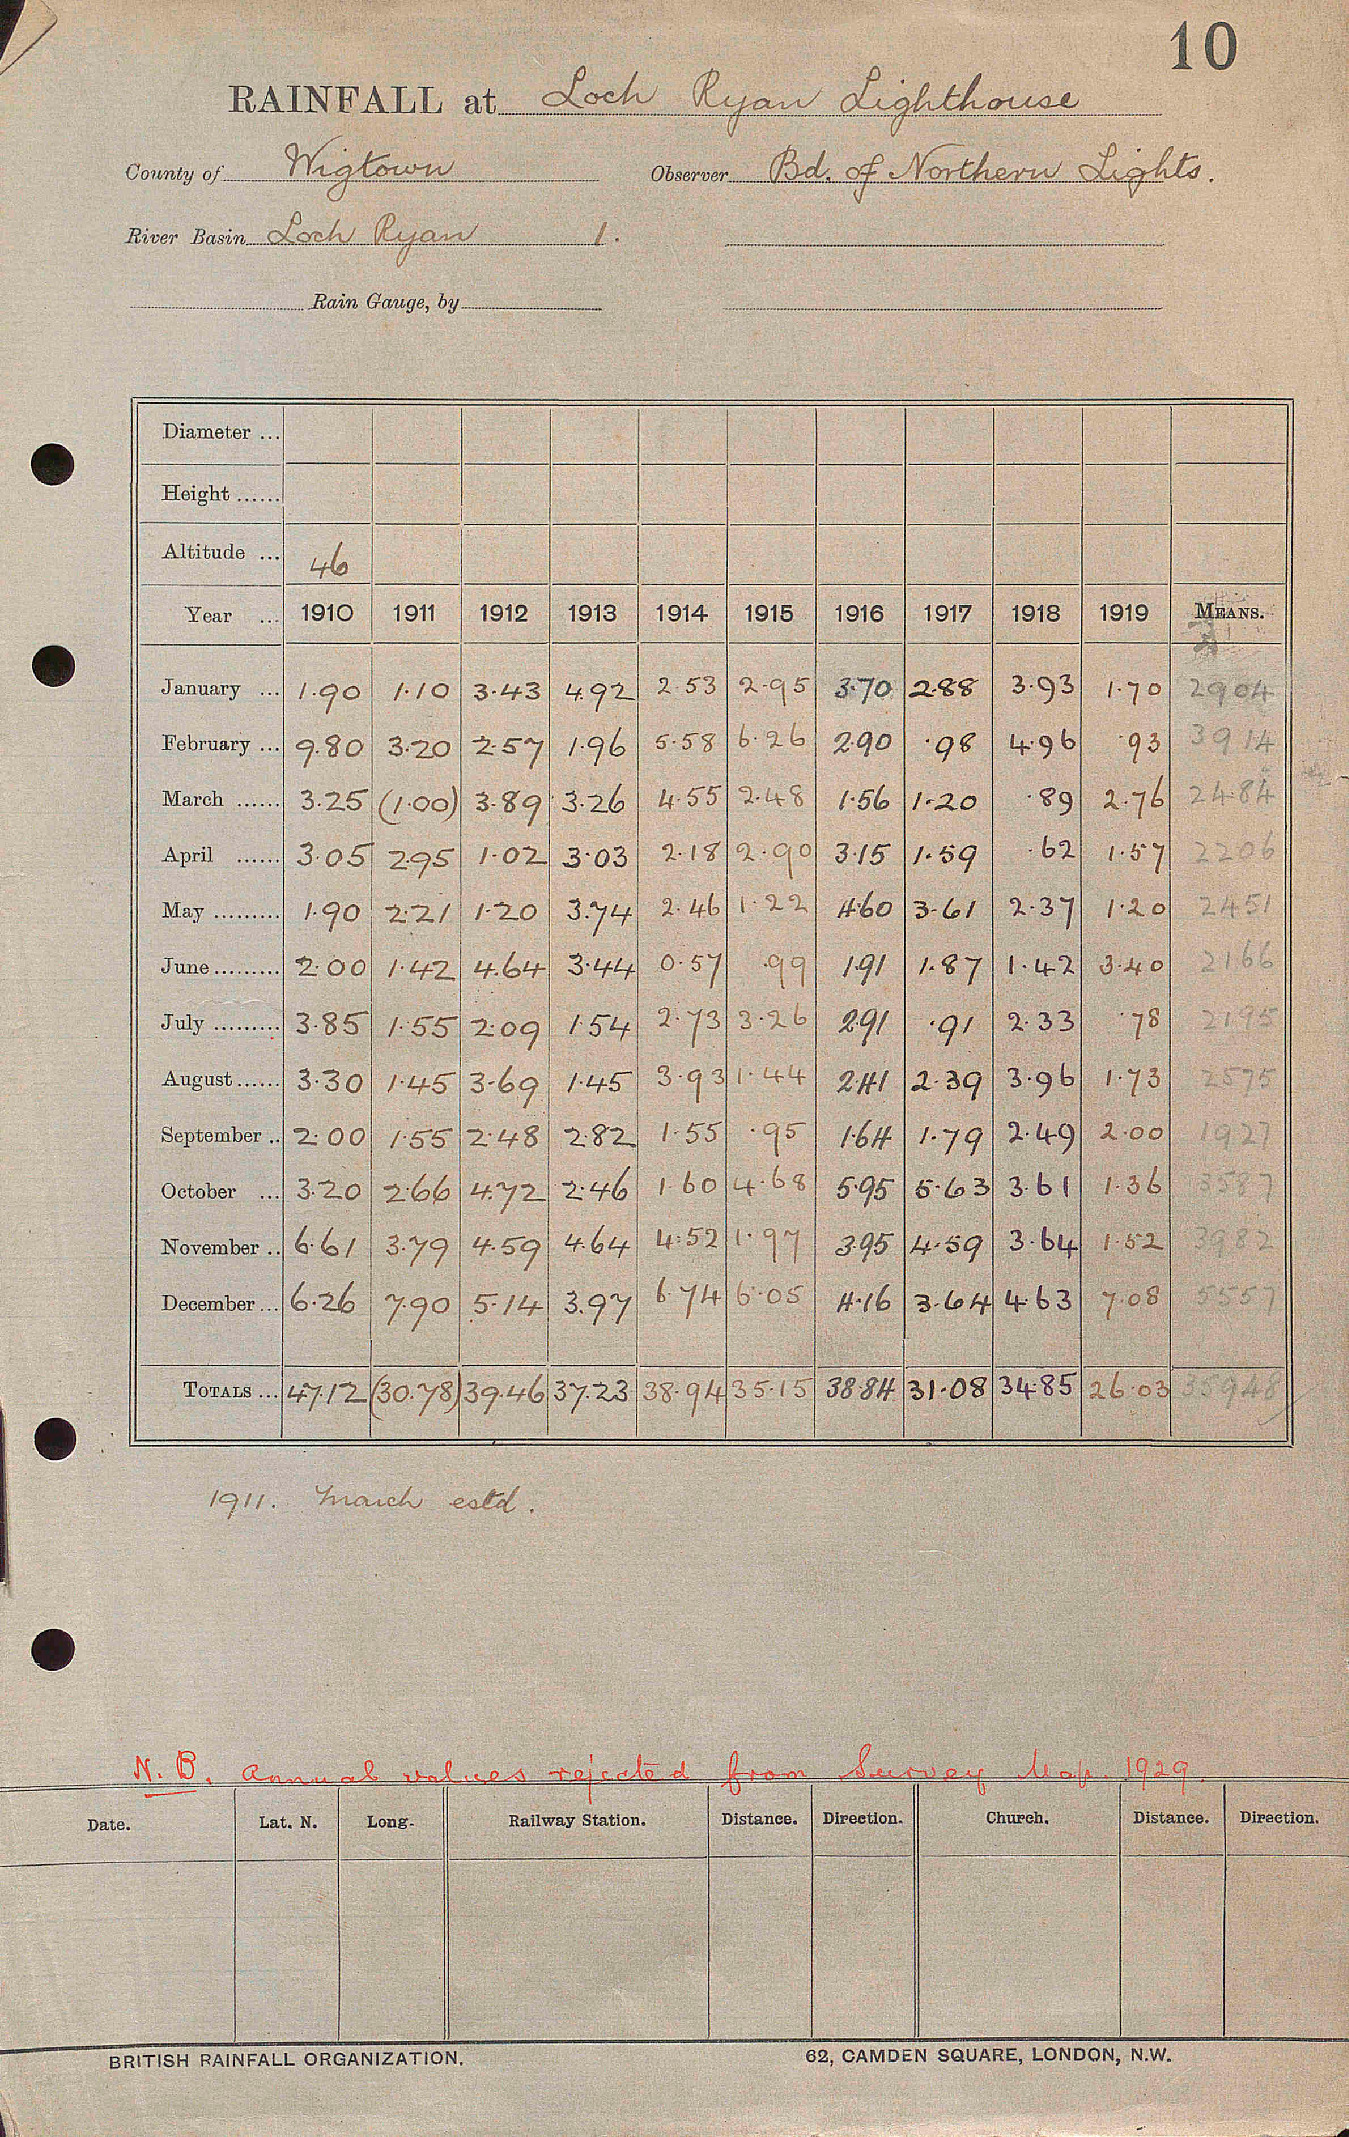 10
RAINFALL at Loch Ryan Lighthouse
County of Wigtown Observer Bd. of Northern Lights.
River Basin Loch Ryan 1.
Rain Gauge, by
Diameter ...
Height ......
Altitude ... 46
Year ... 1910 1911 1912 1913 1914 1915 1916 1917 1918 1919 MEANS.
January ... 1.90 1.10 3.43 4.92 2.53 2.95 3.70 2.88 3.93 1.70 2904
February ... 9.80 3.20 2.57 1.96 5.58 6.26 2.90 .98 4.96 .93 3914
March ...... 3.25 (1.00) 3.89 3.26 4.55 2.48 1.56 1.20 .89 2.76 2484
April ...... 3.05 2.95 1.02 3.03 2.18 2.90 3.15 1.59 .62 1.57 2206
May ......... 1.90 2.21 1.20 3.74 2.46 1.22 4.60 3.61 2.37 1.20 2451
June ......... 2.00 1.42 4.64 3.44 0.57 .99 1.91 1.87 1.42 3.40 2166
July ......... 3.85 1.55 2.09 1.54 2.73 3.26 2.91 .91 2.33 .78 2195
August ...... 3.30 1.45 3.69 1.45 3.93 1.44 2.41 2.39 3.96 1.73 2575
September .. 2.00 1.55 2.48 2.82 1.55 .95 1.64 1.79 2.49 2.00 1927
October ... 3.20 2.66 4.72 2.46 1.60 4.68 5.95 5.63 3.61 1.36 3587
November .. 6.61 3.79 4.59 4.64 4.52 1.97 3.95 4.59 3.64 1.52 3982
December ... 6.26 7.90 5.14 3.97 6.74 6.05 4.16 3.64 4.63 7.08 5557
TOTALS ... 47.12 (30.78) 39.46 37.23 38.94 35.15 38.84 31.08 34.85 26.03 35948
1911. March estd.
N.B. Annual values rejected from Survey Map. 1929.
Date. Lat. N. Long. Railway Station. Distance. Direction. Church. Distance. Direction.
BRITISH RAINFALL ORGANIZATION. 62, CAMDEN SQUARE, LONDON, N.W.